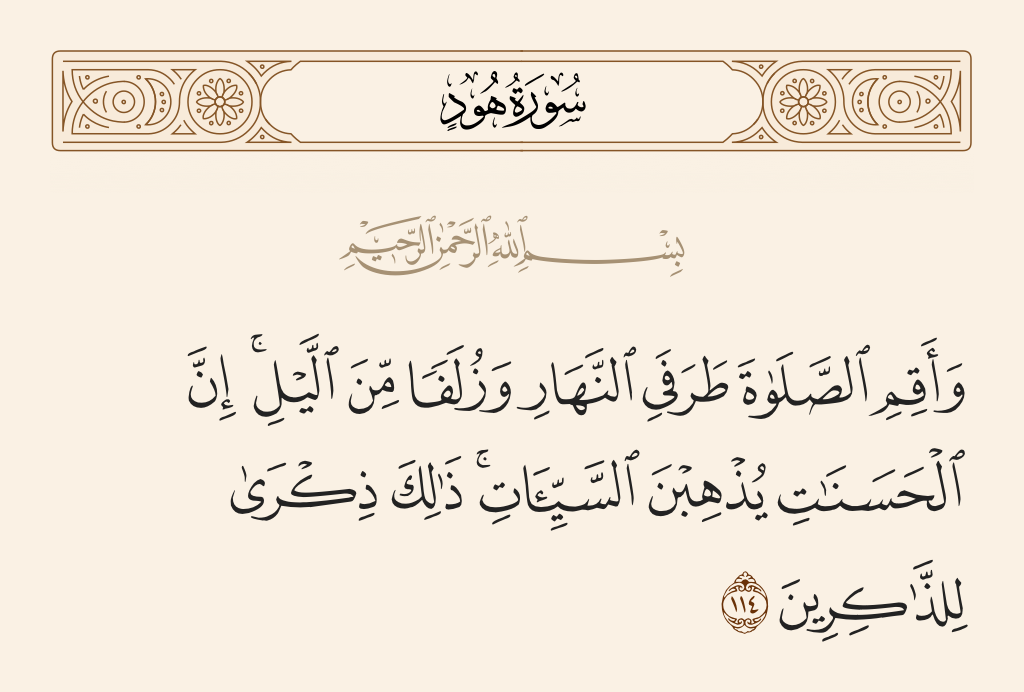 سُورَةُ هُودٍ
بِسْمِ ٱللَّهِ ٱلرَّحْمَٰنِ ٱلرَّحِيمِ
وَأَقِمِ ٱلصَّلَوٰةَ طَرَفَىِ ٱلنَّهَارِ وَزُلَفًا مِّنَ ٱلَّيْلِ ۚ إِنَّ
ٱلْحَسَنَٰتِ يُذْهِبْنَ ٱلسَّيِّـَٔاتِ ۚ ذَٰلِكَ ذِكْرَىٰ
لِلذَّٰكِرِينَ ١١٤